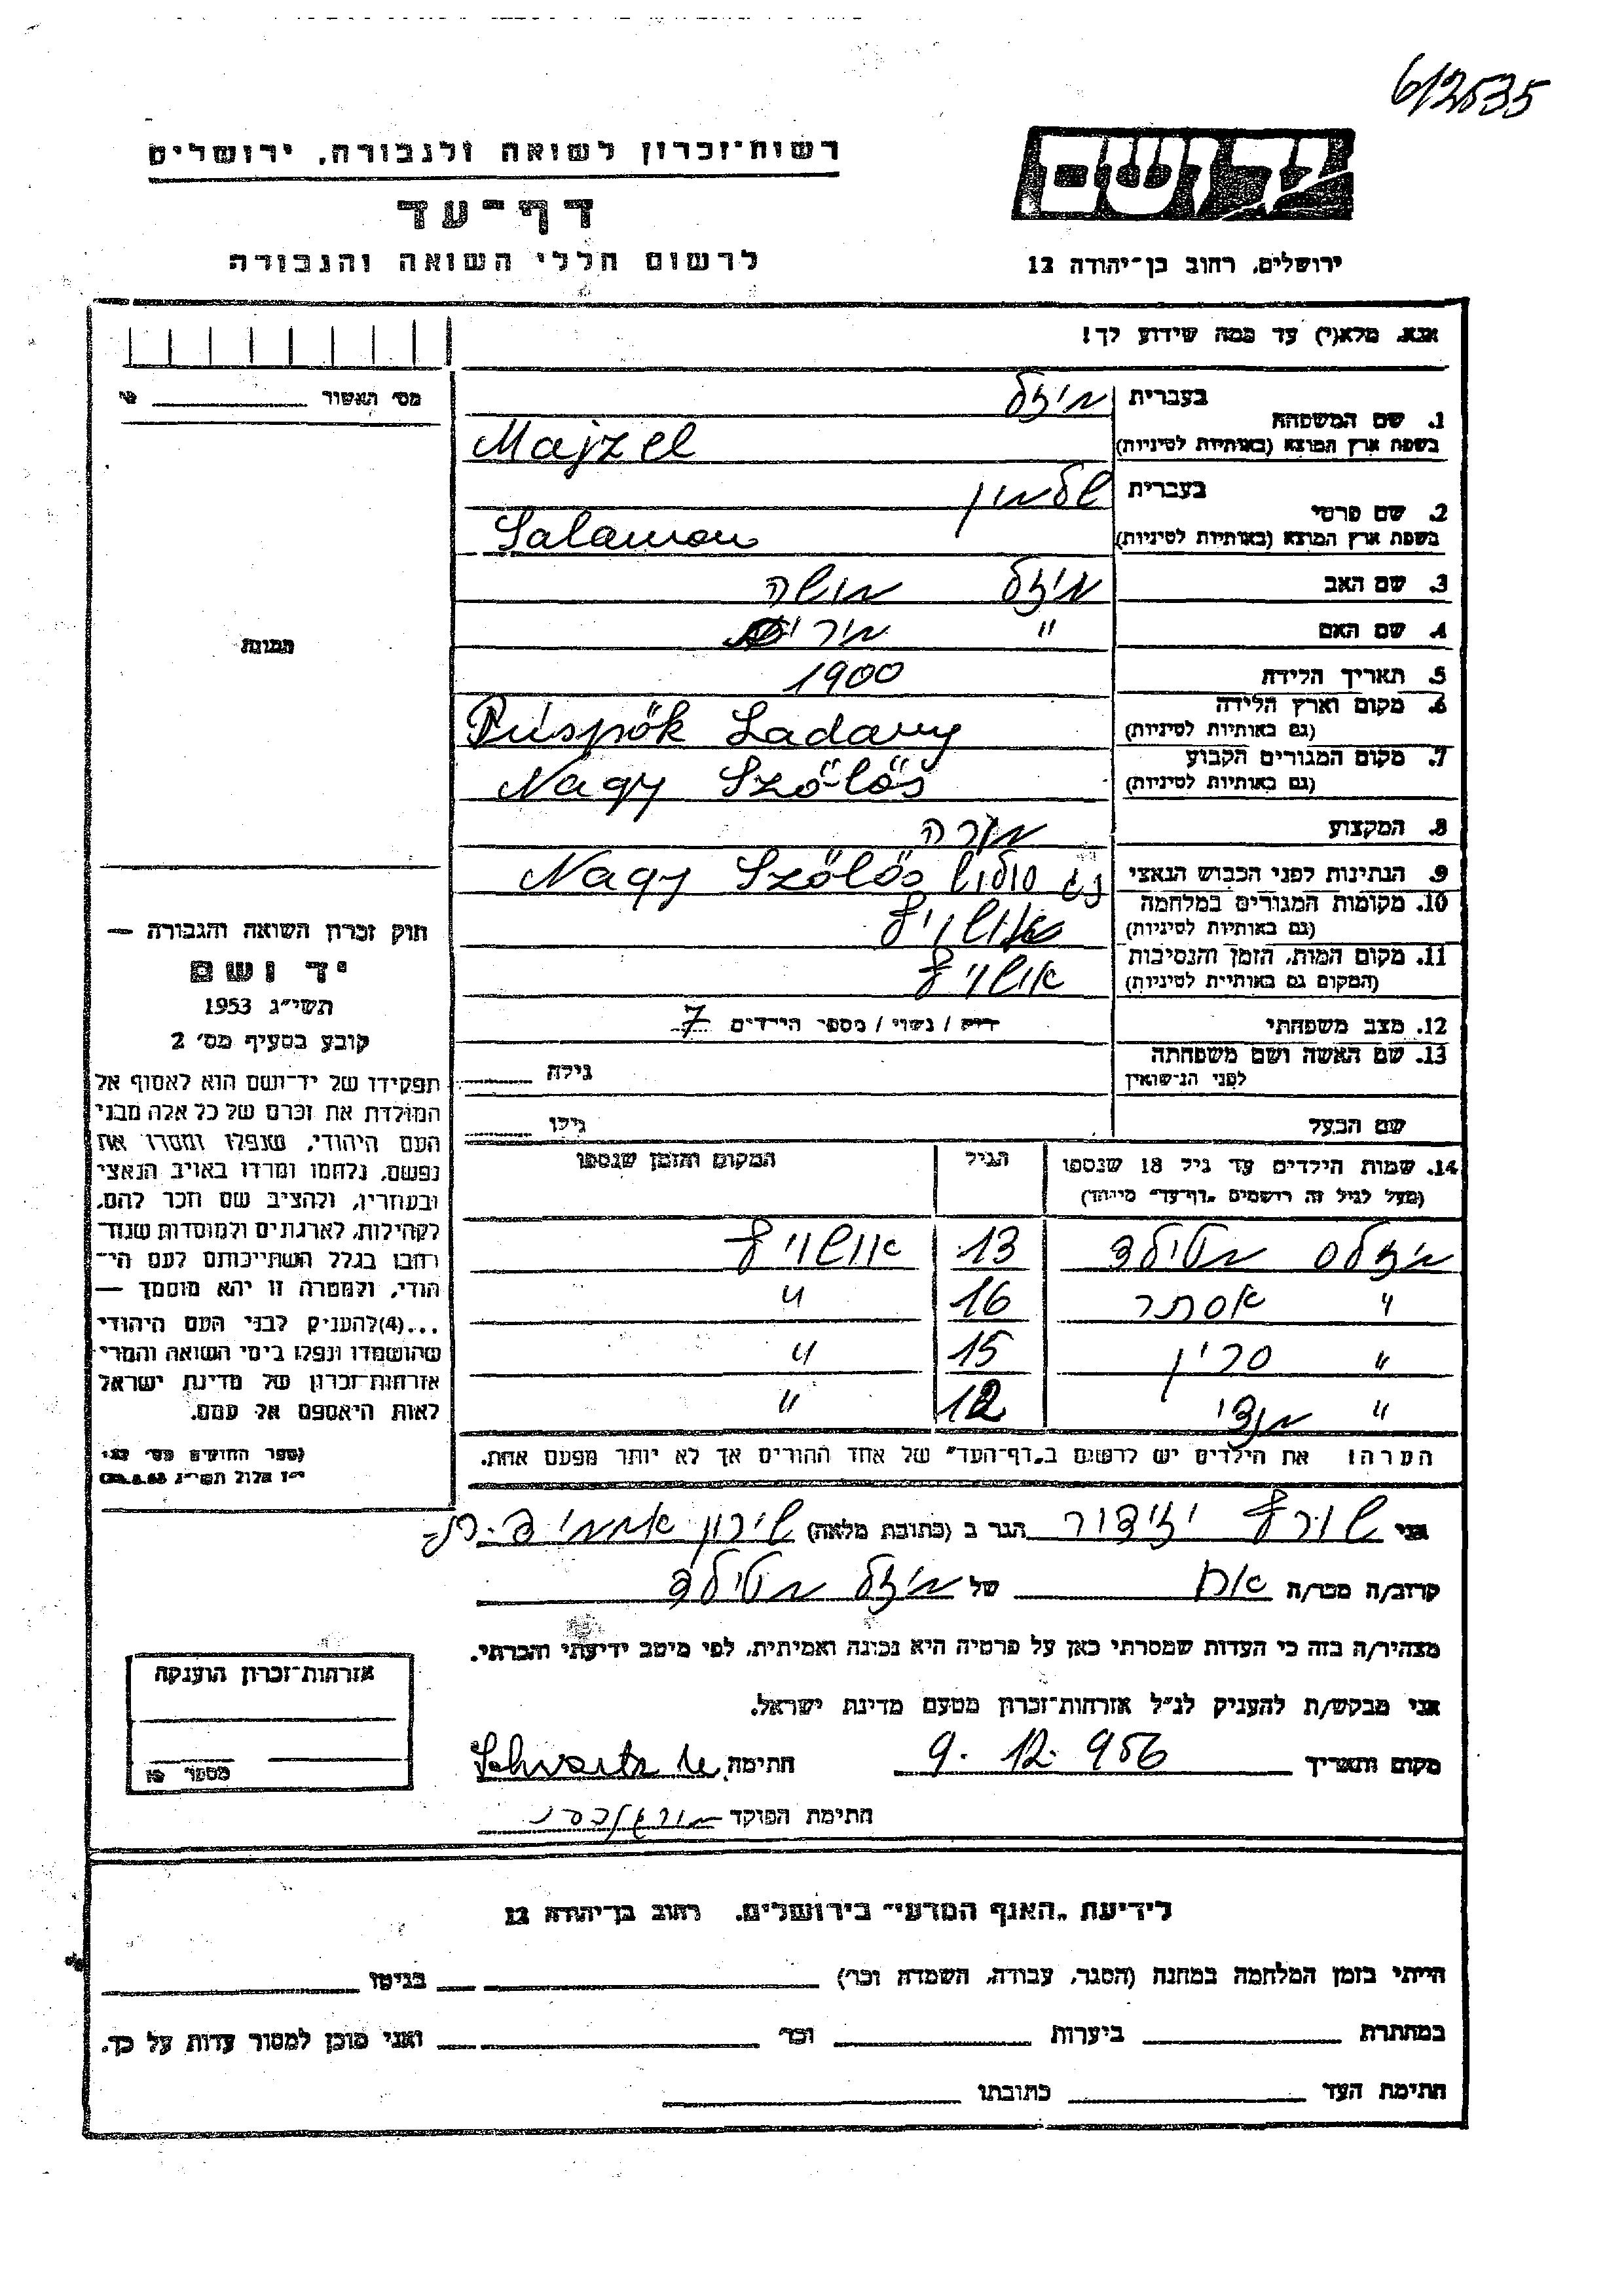 612535
רשות־זכרון לשואה ולגבורה, ירושלים
דף־עד
לרשום חללי השואה והגבורה
יד ושם
ירושלים, רחוב בן־יהודה 12
אנא, מלא(י) עד כמה שידוע לך!
מס' האשור
1. שם המשפחה
בעברית מיזל
בשפת ארץ המוצא (באותיות לטיניות) Majzel
2. שם פרטי
בעברית שלמון
בשפת ארץ המוצא (באותיות לטיניות) Salamon
3. שם האב מיזל משה
4. שם האם "
5. תאריך הלידה 1900
6. מקום וארץ הלידה
(גם באותיות לטיניות) Püspök Ladany
7. מקום המגורים הקבוע
(גם באותיות לטיניות) Nagy Szőlős
8. המקצוע מורה
9. הנתינות לפני הכבוש הנאצי Nagy Szőlős
10. מקומות המגורים במלחמה
(גם באותיות לטיניות) אושויץ
11. מקום המות, הזמן והנסיבות
(המקום גם באותיות לטיניות) אושויץ
12. מצב משפחתי רווק / נשוי / מספר הילדים 7
13. שם האשה ושם משפחתה
לפני הנישואין
גילה
שם הבעל גילו
14. שמות הילדים עד גיל 18 שנספו הגיל המקום והזמן שנספו
(מעל לגיל זה רושמים "דף־עד" מיוחד)
מטילד 13 אושויץ
" אסתר 16 "
" 15 "
" 12 "
הערה: את הילדים יש לרשום ב"דף־העד" של אחד ההורים אך לא יותר מפעם אחת.
תמונה
חוק זכרון השואה והגבורה —
יד ושם
תשי"ג 1953
קובע בסעיף מס' 2
תפקידו של יד־ושם הוא לאסוף אל
המולדת את זכרם של כל אלה מבני
העם היהודי, שנפלו ומסרו את
נפשם, נלחמו ומרדו באויב הנאצי
ובעוזריו, ולהציב שם וזכר להם,
לקהילות, לארגונים ולמוסדות שנח־
רבו בגלל השתייכותם לעם הי־
הודי, ולמטרה זו יהא מוסמך —
...(4) להעניק לבני העם היהודי
שהושמדו ונפלו בימי השואה והמרי
אזרחות־זכרון של מדינת ישראל
לאות היאספם אל עמם.
(ספר החוקים מס' 132
אני הגר ב (כתובת מלאה)
קרוב/ה מכר/ה אח של מיזל מטילד
מצהיר/ה בזה כי העדות שמסרתי כאן על פרטיה היא נכונה ואמיתית, לפי מיטב ידיעתי והכרתי.
אני מבקש/ת להעניק לנ"ל אזרחות־זכרון מטעם מדינת ישראל.
מקום ותאריך 9. 12. 956 חתימה
חתימת הפוקד
אזרחות־זכרון הוענקה
מספר
לידיעת "האגף המדעי" בירושלים, רחוב בן־יהודה 12
הייתי בזמן המלחמה במחנה (הסגר, עבודה, השמדה וכו') בגיטו
במחתרת ביערות וכו' ואני מוכן למסור עדות על כך.
חתימת העד כתובתו